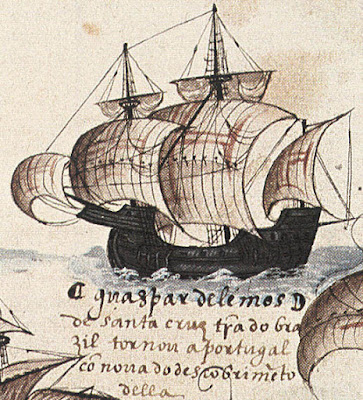 guaspar de lemos D
de Santa cruz tr̃a do bra
zil tornou a portugal
cõ noua do descobrimẽto
della